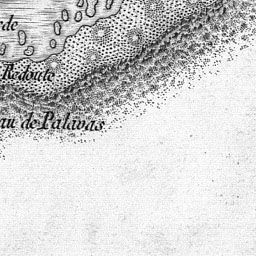 de
Redoute
au de Palavas